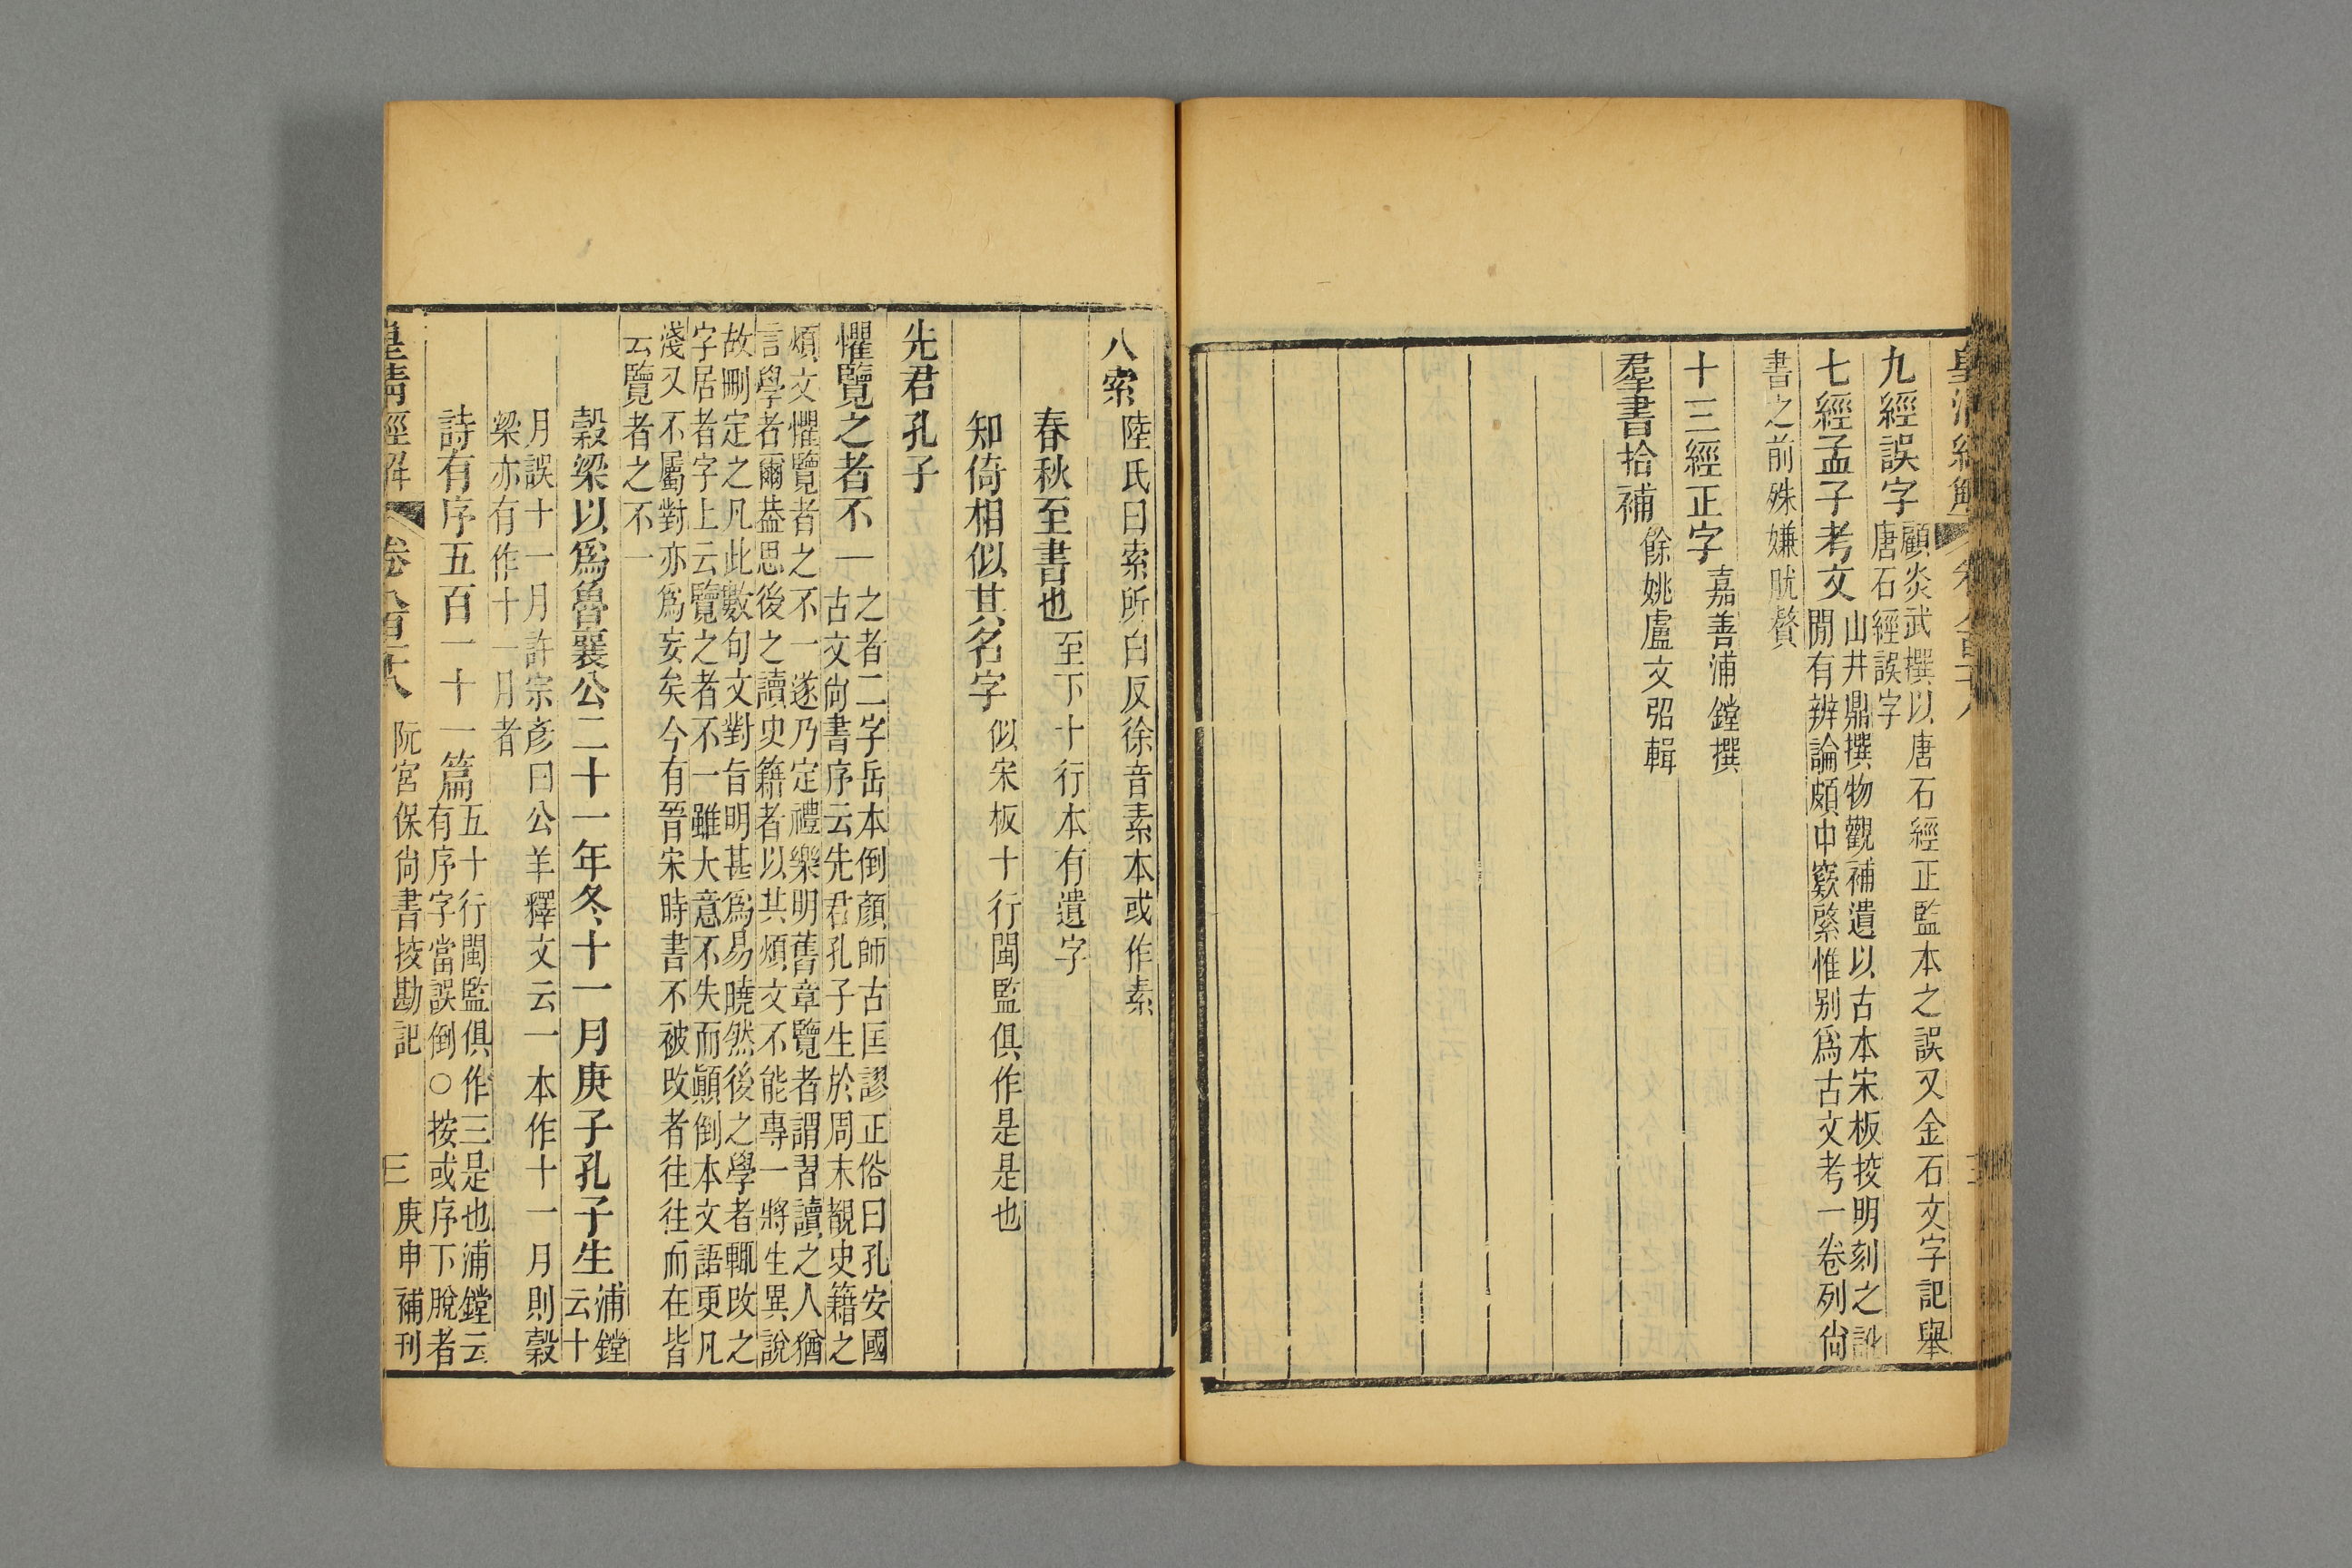 九經誤字顧炎武撰以唐石經正監本之誤又金石文字記舉
唐石經誤字
七經孟子考文山井鼎撰物觀補遺以古本宋板挍明刻之訛
閒有辨論頗中窾綮惟别爲古文考一卷列尙
書之前殊嫌肬贅
十三經正字嘉善浦鏜撰
羣書拾補餘姚盧文弨輯
八索陸氏曰索所白反徐音素本或作素
春秋至書也至下十行本有遺字
知倚相似其名字似宋板十行閩監俱作是是也
先君孔子
懼覽之者不一之者二字岳本倒顏師古匡謬正俗曰孔安國
古文尙書序云先君孔子生於周末覩史籍之
煩文懼覽者之不一遂乃定禮樂明舊章覽者謂習讀之人猶
言學者爾葢思後之讀史籍者以其煩文不能專一將生異說
故刪定之凡此數句文對旨明甚爲易曉然後之學者輒改之
字居者字上云覽之者不一雖大意不失而顚倒本文語更凡
淺又不屬對亦爲妄矣今有晉宋時書不被改者往往而在皆
云覽者之不一
穀梁以爲魯襄公二十一年冬十一月庚子孔子生浦鏜
云十
月誤十一月許宗彥曰公羊釋文云一本作十一月則穀
梁亦有作十一月者
詩有序五百一十一篇五十行閩監俱作三是也浦鏜云
有序字當誤倒○按或序下脫者
皇淸經解 卷八百十八 阮宮保尙書挍勘記 三 庚申補刊